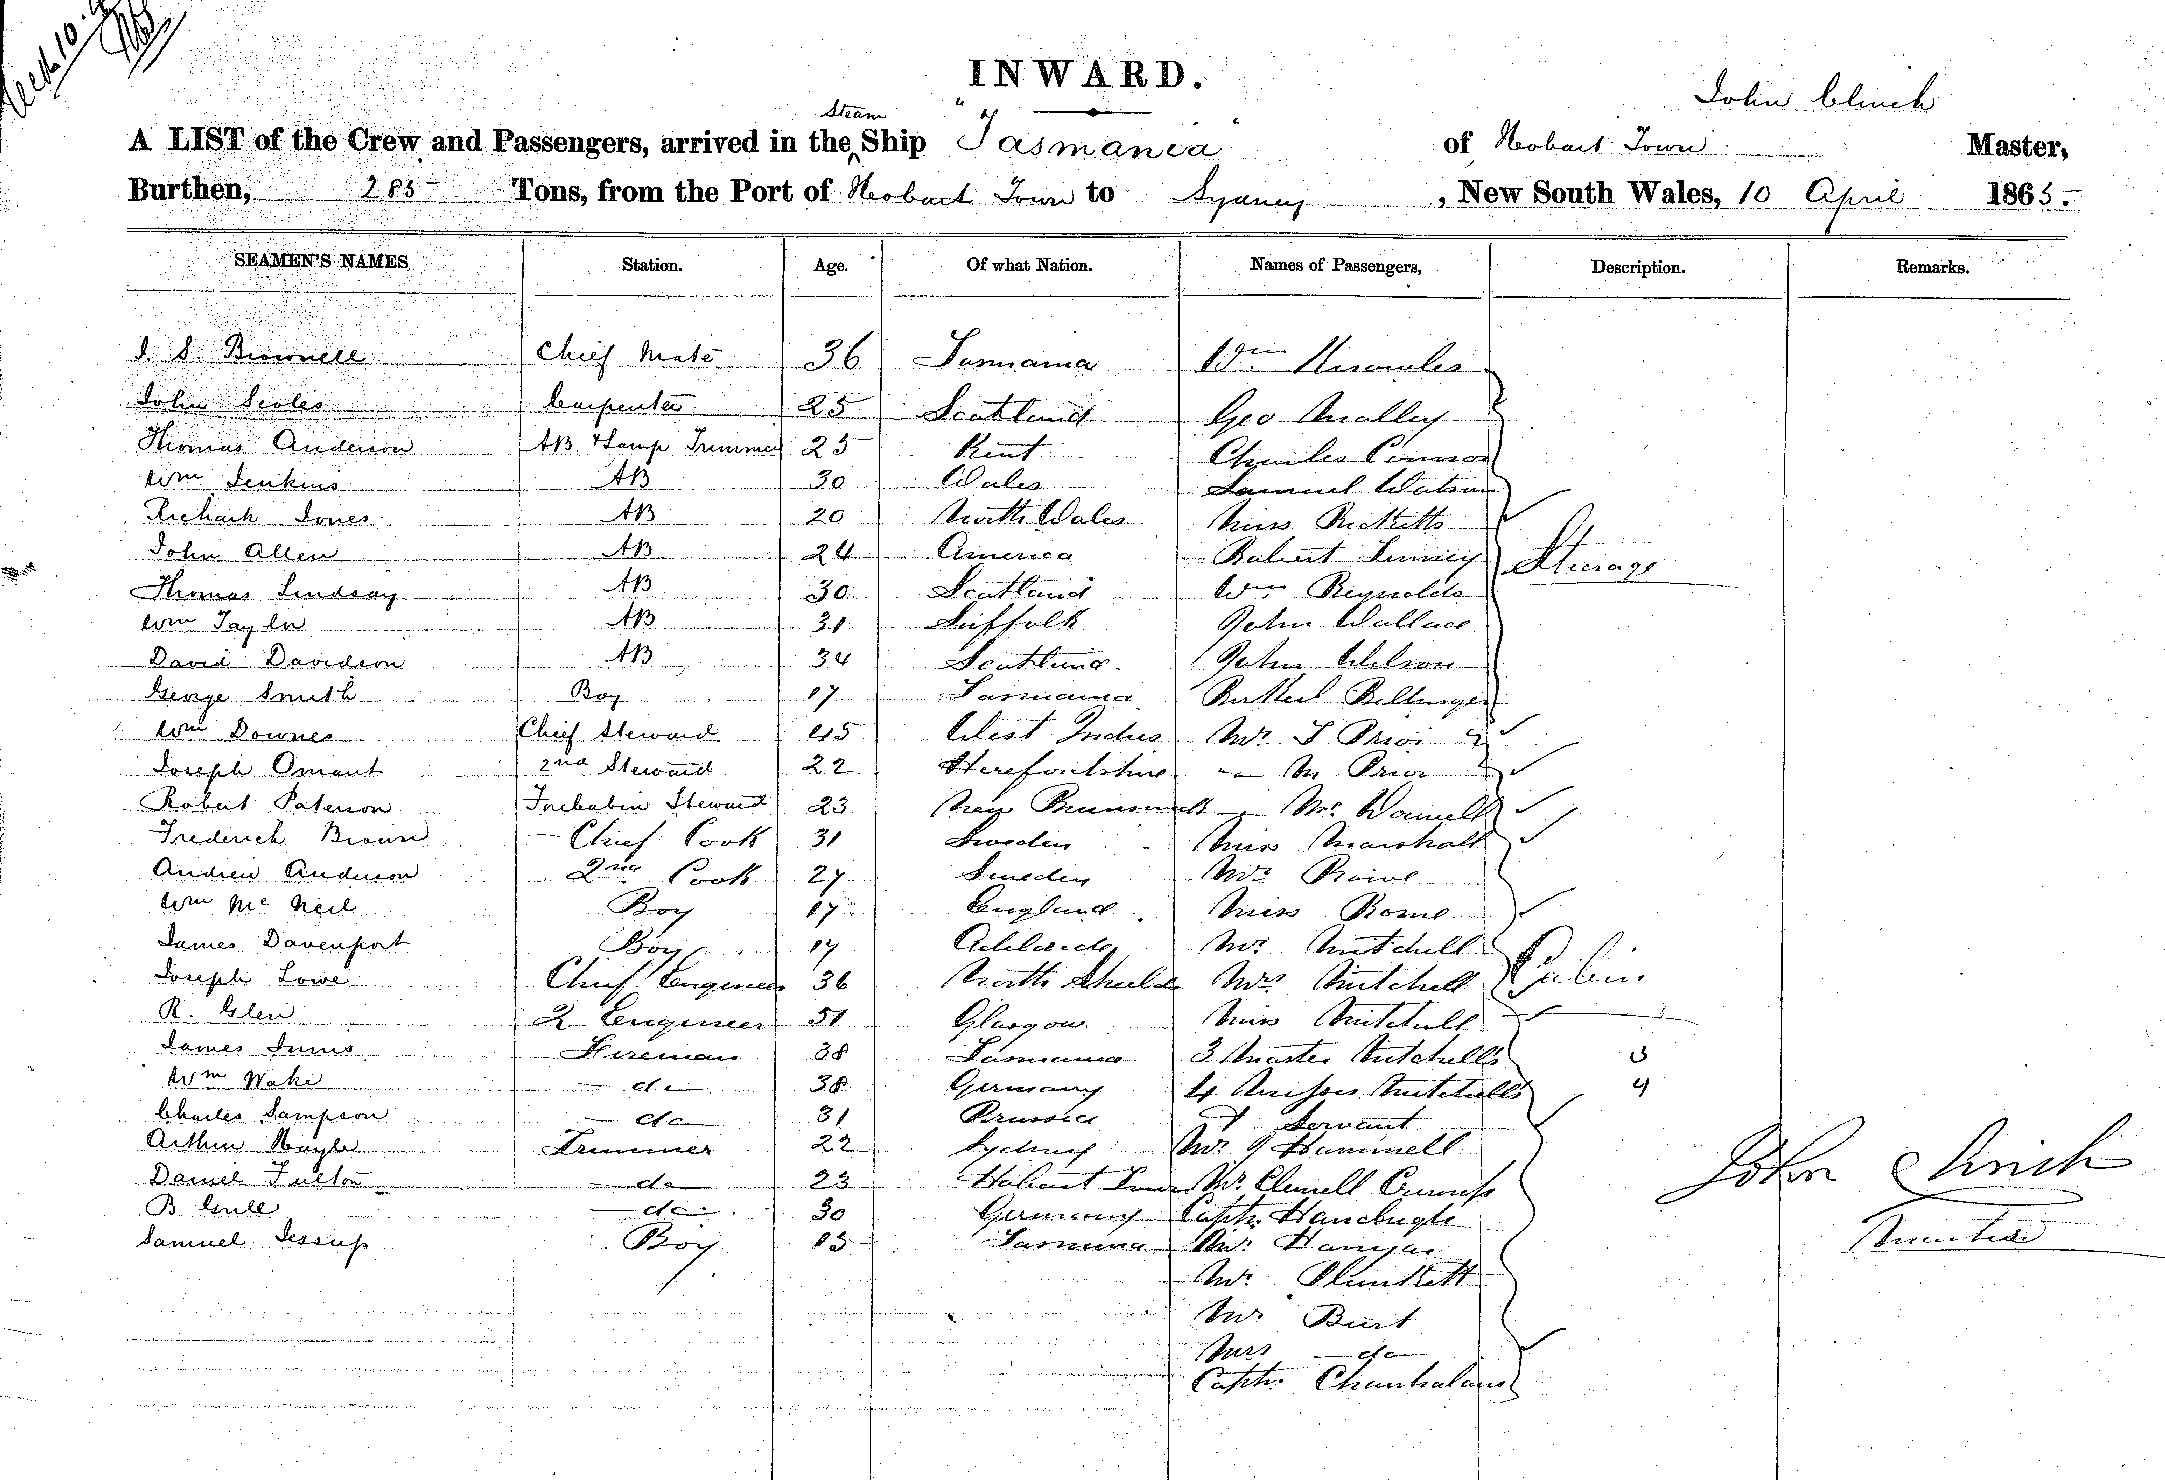 INWARD.
John Clinch
Steam
A LIST of the Crew and Passengers, arrived in the Ship "Tasmania" of Hobart Town Master,
Burthen, 285 Tons, from the Port of Hobart Town to Sydney, New South Wales, 10 April 1865.
SEAMEN'S NAMES Station. Age. Of what Nation. Names of Passengers, Description. Remarks.
Brownell Chief Mate 36 Tasmania Wm Knowles
John Scoles Carpenter 25 Scotland Geo Malley
Thomas Anderson AB & Lamp Trimmer 25 Kent Charles Connor
Wm Jenkins AB 30 Wales Samuel Watson
Richard Jones AB 20 North Wales Miss Ricketts
John Allen AB 24 America Robert
Thomas Lindsay AB 30 Scotland Wm Reynolds
Steerage
Wm Taylor AB 31 Suffolk John Wallace
David Davidson AB 34 Scotland John Wilson
George Smith Boy 17 Tasmania Bellinger
Wm Downes Chief Steward 45 West Indies Mr Prior
Joseph Omant 2nd Steward 22 Herefordshire M Prior
Robert Paterson Forecabin Steward 23 New Brunswick
Frederick Brown Chief Cook 31 Sweden Miss Marshall
Andrew Anderson 2nd Cook 27 Sweden
Wm Mc Neil Boy 17 England Miss Rome
James Davenport Boy 17 Adelaide Mr Mitchell
Joseph Lowe Chief Engineer 36 North Shields Mrs Mitchell Cabin
R. Glen 2 Engineer 51 Glasgow Miss Mitchell
James Innis Fireman 38 Tasmania 3 Master Mitchells 3
Wm Wake do 38 Germany 4 Misses Mitchells 4
Charles Sampson do 31 Prussia & Servant
Arthur Trimmer 22 Sydney Mr Hummell
Daniel Fulton do 23 Hobart Town Mr
John Clinch
B do 30 Germany Captn
Samuel Jessup Boy 15 Tasmania Mr
Mr Plunkett
Mr Burt
Mrs do
Captn